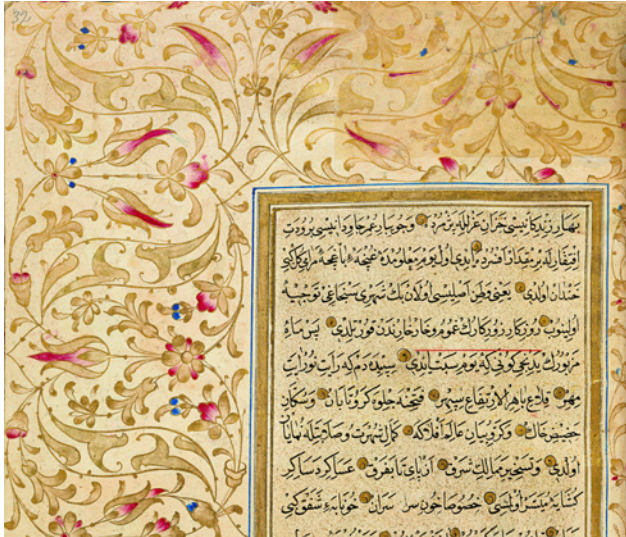 بهار زندکانیسی خزان عزلله پژمرده و جویبار عمر جاودانیسی برودت
افتقارله بر مقدار افسرده ایدی اول یوم معلومده غنچهٔ باغچهٔ مرامی کل کبی
خندان اولدی یعنی وطن اصلیسی اولان بك شهری سنجاغی توجیه
اولینوب روزکار زورکارك غموم و خار خارندن قورتلدی پس ماه
مزبورك یدنجی کونی که یوم سبت ایدی سپیده دم که رایت نورایت
مهر قلاع باهر الارتفاع سپهره فتحنه جلوه کر و تابان و سکان
حضیض خاك و کروبیان عالم افلاکه کمال شهرت و صلابتله نمایان
اولدی و تسخیر ممالك شرق از پای تا بفرق عساکر دساکر
کشایه میسر اولنسی خصوصا خون سر سران خونابهٔ شفق کبی